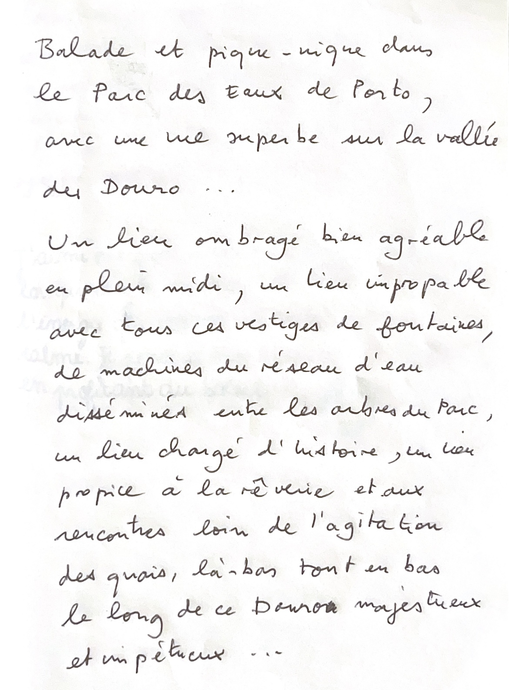 Balade et pique-nique dans
le Parc des Eaux de Porto,
avec une vue superbe sur la vallée
du Douro ...
Un lieu ombragé bien agréable
en plein midi, un lieu impropable
avec tous ces vestiges de fontaines,
de machines du réseau d'eau
disséminés entre les arbres du Parc,
un lieu chargé d'histoire, un lieu
propice à la rêverie et aux
rencontres loin de l'agitation
des quais, là-bas tout en bas
le long de ce Douro majestueux
et impétueux ...